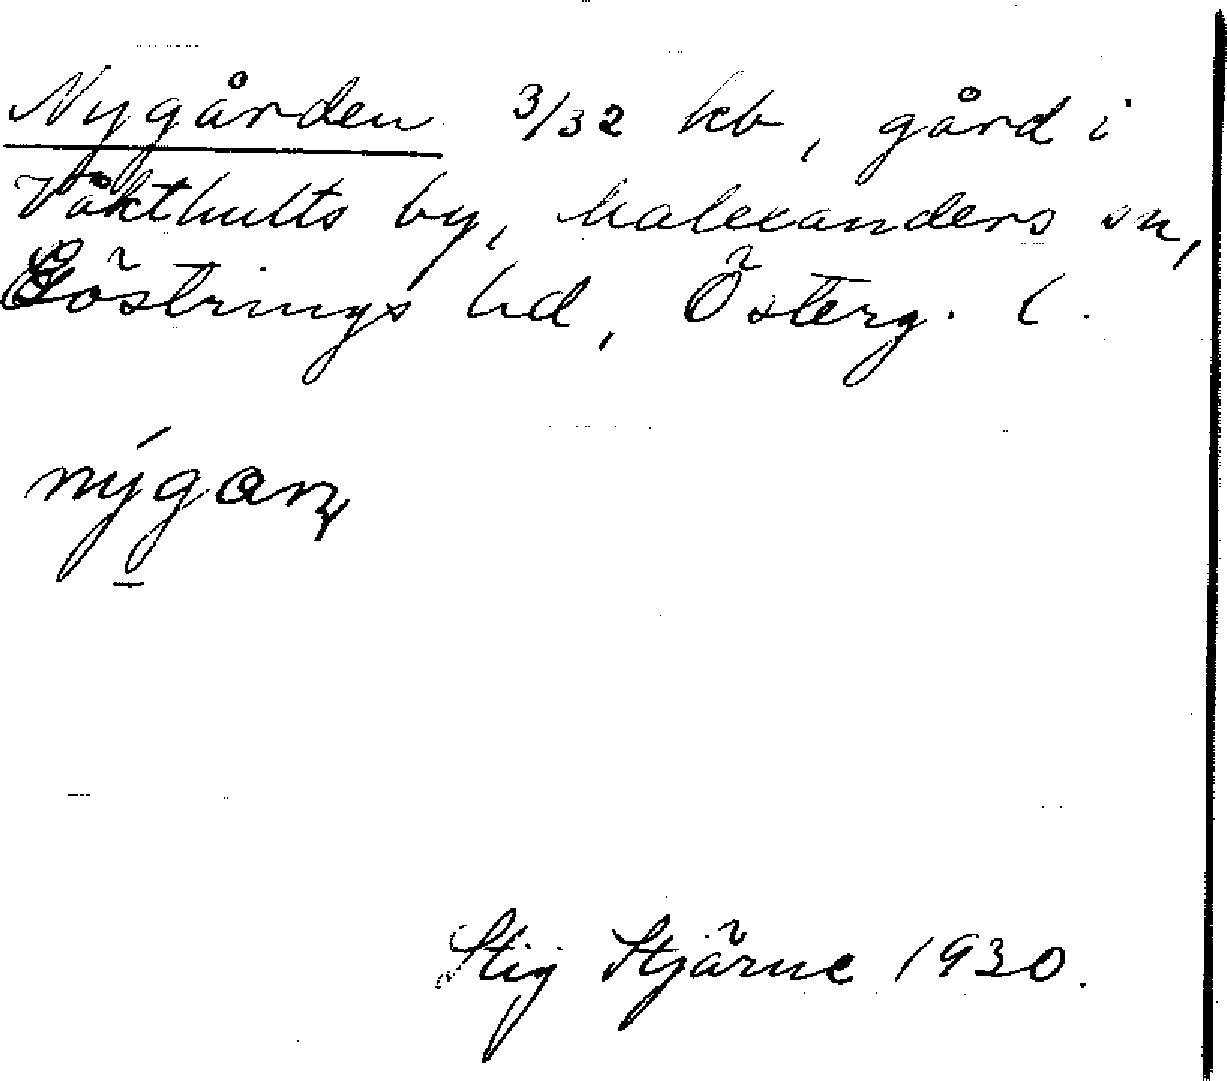 Nygården 3/32 kb, gård i
Våkthults by, Malexanders sn,
Göstrings hd, Österg. l.
nýgaṛn
Stig Stjärne 1930.